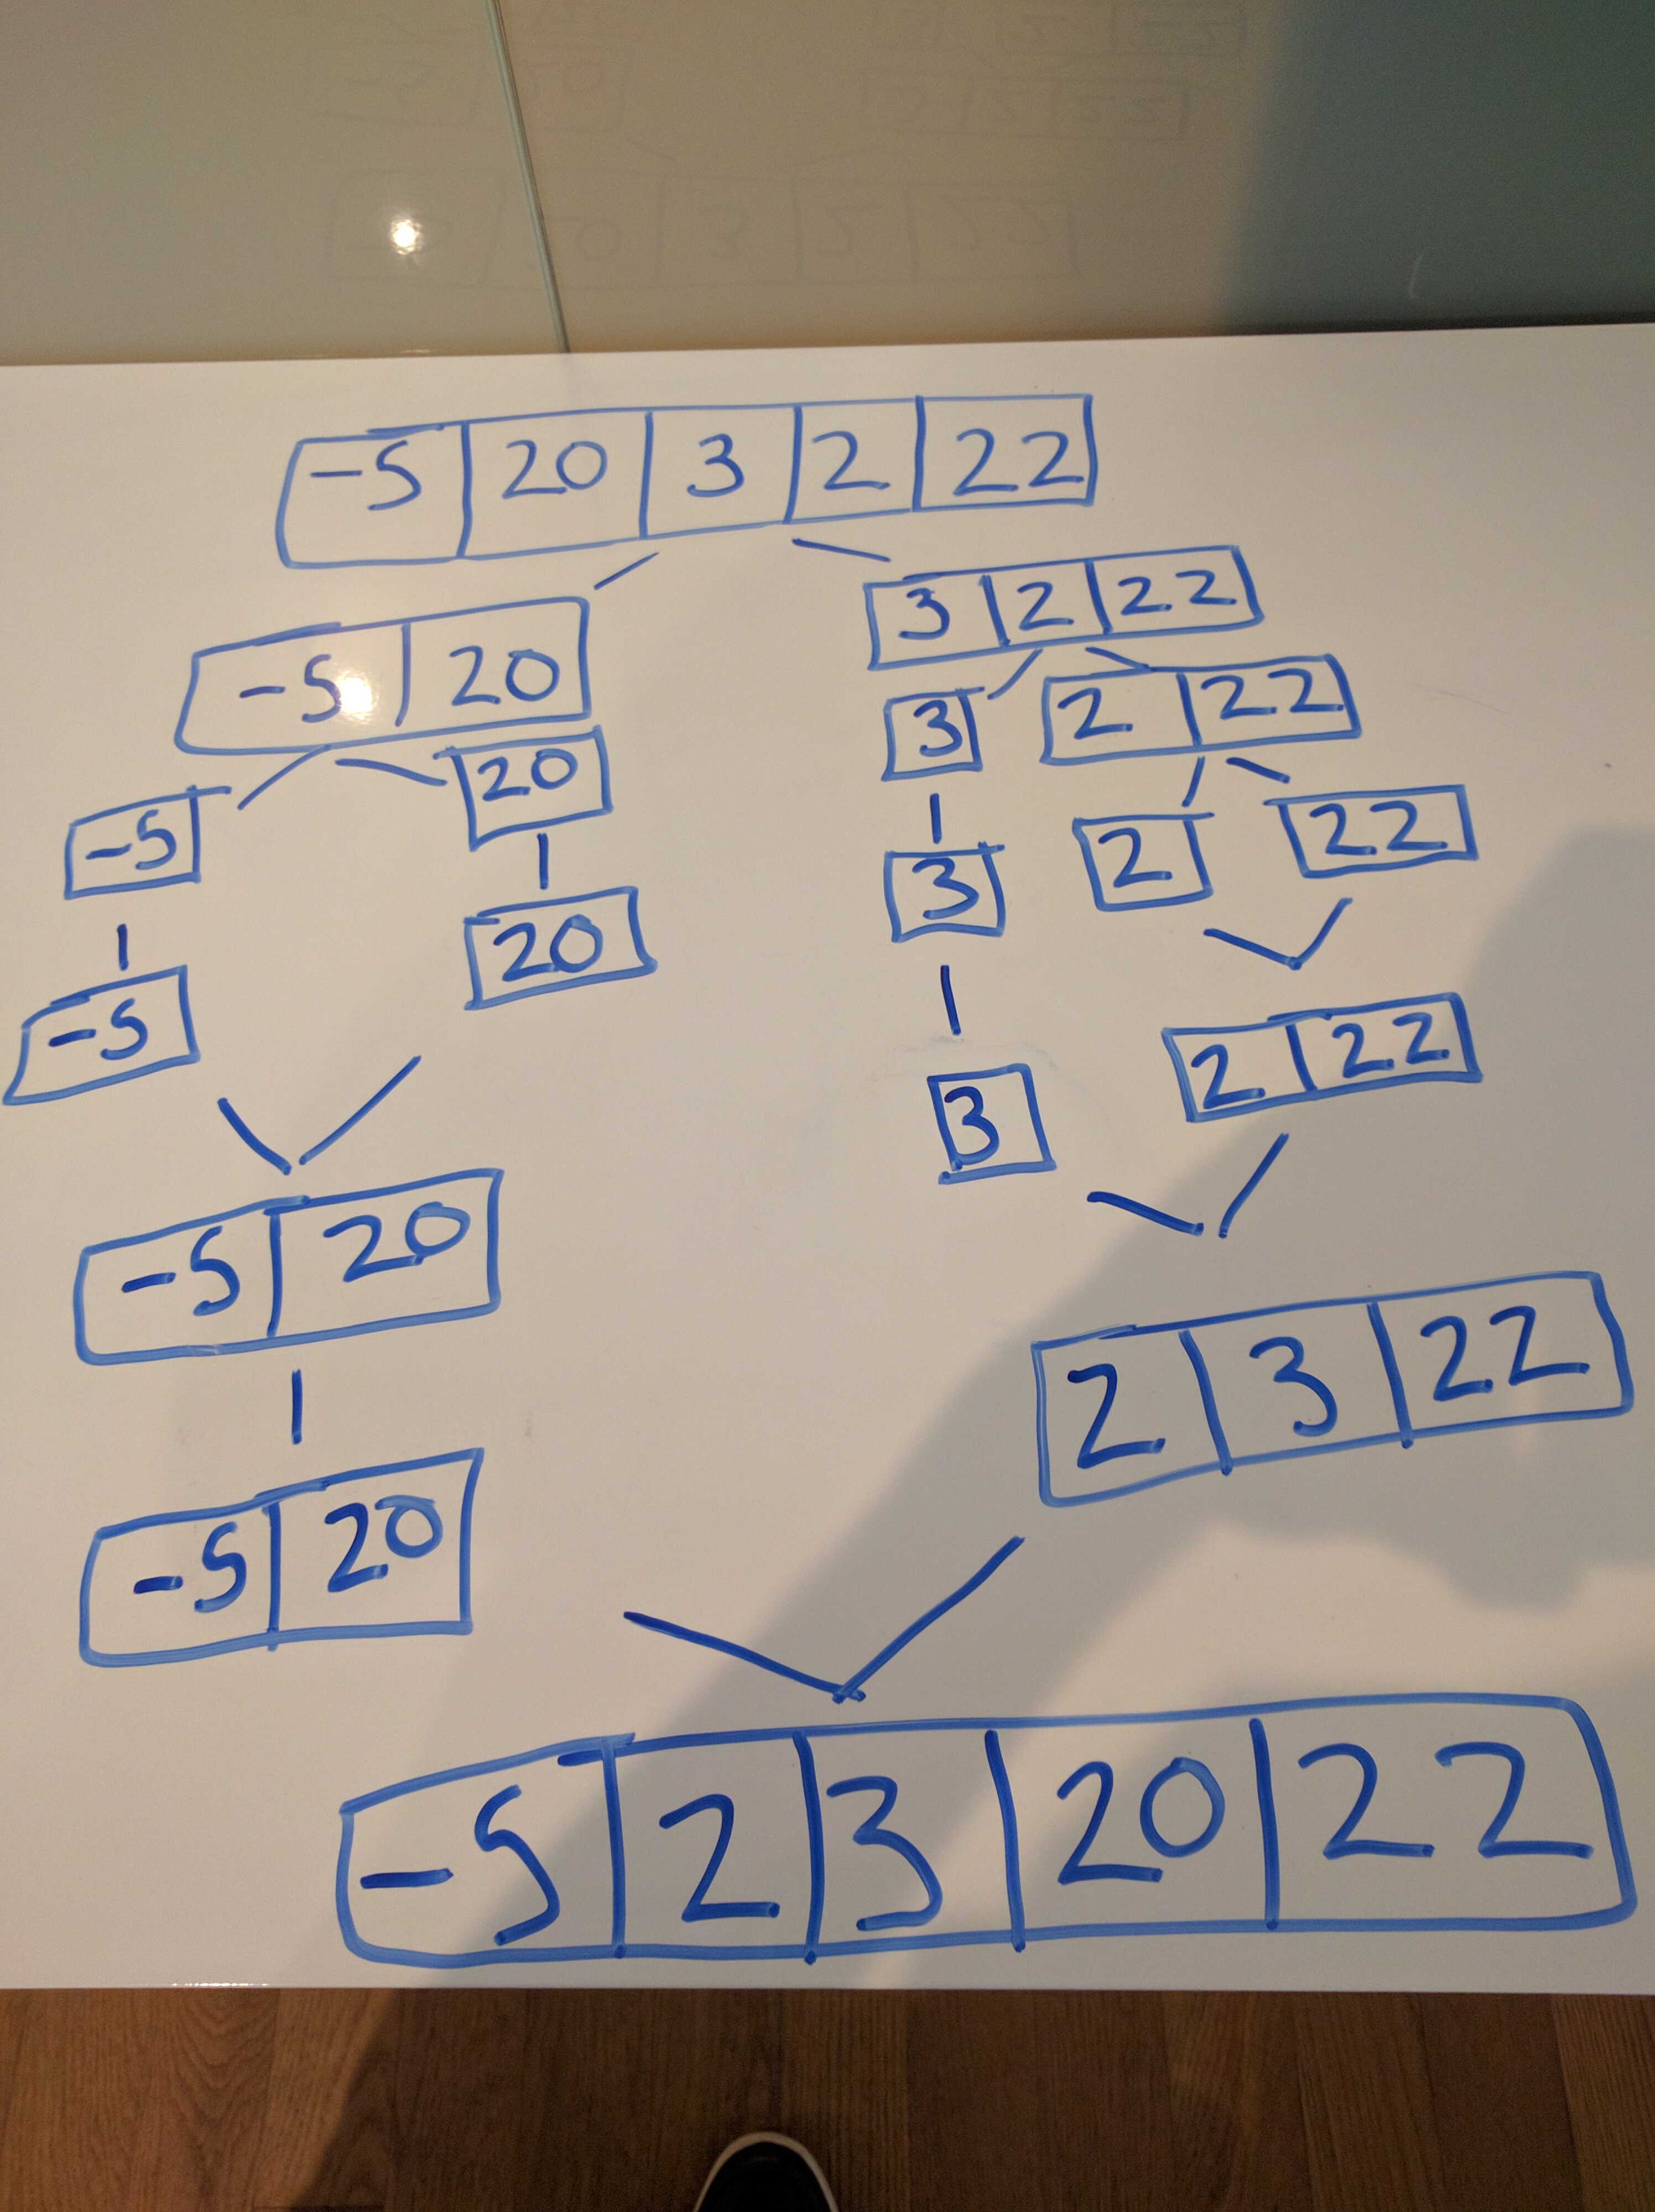 -5 20 3 2 22
-5 20
3 2 22
3
2 22
-5
20
3
2
22
-5
20
3
2 22
-5 20
2 3 22
-5 20
-5 2 3 20 22